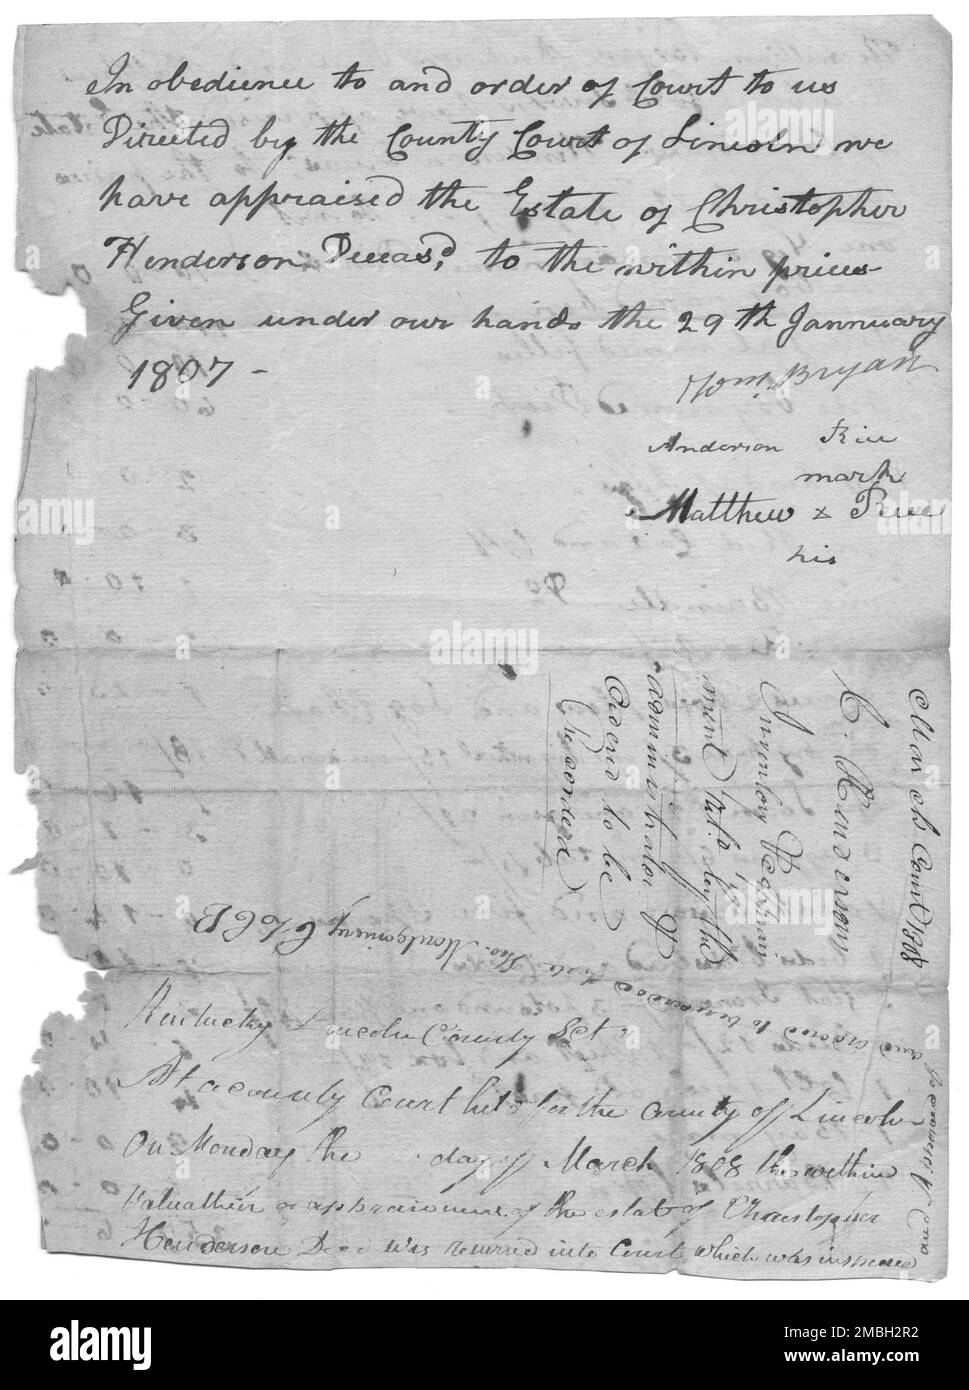 In obedience to and order of Court to us
Directed by the County Court of Lincoln we
have appraised the Estate of Christopher
Henderson Deceasd, to the within prices
Given under our hands the 29th Jannuary
1807 -
Wm. Bryan
Anderson Rice
mark
Matthew x Rice
his
March Court 1808
C. Henderson
Inventory &
ment
administrator &
Ordered to be
Recorded
Kentucky Lincoln County Sct
At a county Court held for the County of Lincoln
On Monday the day of March 1808 the within
Valuation or appraisement of the estate of Christopher
Henderson Decd was returned into Court which was
and ordered to be recorded
Tho. Montgomery
alamy
alamy
Image ID: 2MBH2R2
www.alamy.com